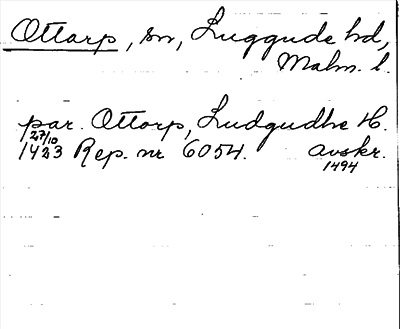 Ottarp, sn, Luggude hd,
Malm. l.
par. Ottorp, Ludgudhe H.
27/10
1423 Rep. nr 6054. avskr.
1494